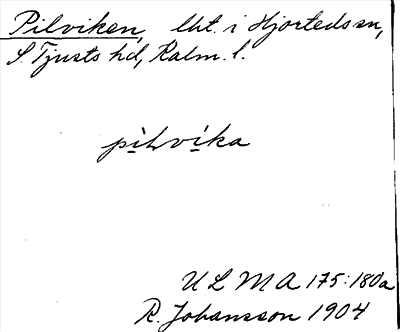 Pilviken, lht. i Hjorteds sn,
S. Tjusts hd, Kalm. l.
pilvika
ULMA 175:180a
R. Johansson 1904